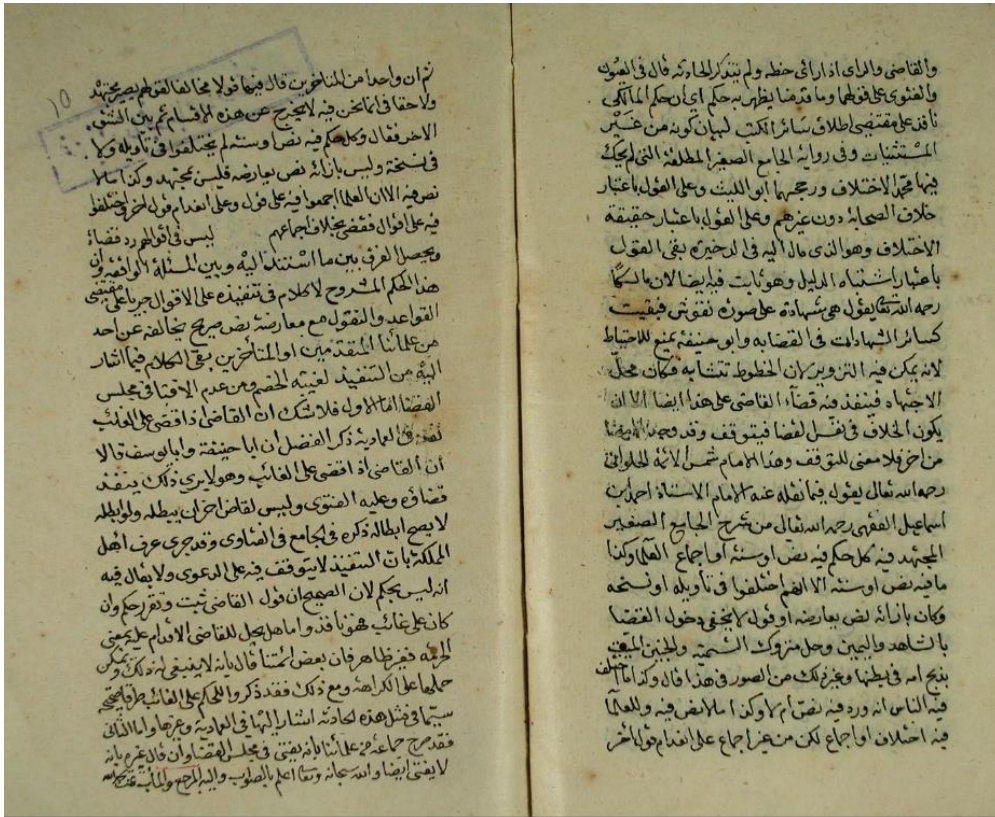 والقاضي والراى اذا راى خطه ولم يتذكر الحادثه قال في العيون
والفتوى على قولهما وما قدمنا يظهر به حكم اي ان حكم المالكى
نافذ على مقتضى اطلاق سائر الكتب لبيان كونه من غير
المستثنيات وفي رواية الجامع الصغير المطلقة التي لم يحك
فيها محمد الاختلاف ورجحها ابو الليث وعلى القول باعتبار
خلاف الصحابة دون غيرهم وعلى القول باعتبار حقيقة
الاختلاف وهو الذى مال اليه في الدخيره بقى القول
باعتبار اشتباه الدليل وهو ثابت فيه ايضا لان مالكا
رحمه الله تعالى يقول هي شهادة على صورة نقوش فبقيت
كسائر الشهادات في القضا به وابو حنيفة يمنع للاحتياط
لانه يمكن فيه التزوير لان الخطوط تتشابه فكان محل
الاجتهاد فينفذ فيه قضاء القاضى على هذا ايضا الا ان
يكون الخلاف في نفس القضا فيتوقف وقد وجد الامضا
من اخر فلا معنى للتوقف وهذا الامام شمس الائمة الحلواني
رحمه الله تعالى يقول فيما نقله عنه الامام الاستاذ احمد بن
اسماعيل الفقهى رحمه الله تعالى من شرح الجامع الصغير
المجتهد فيه كل حكم فيه نص او سنة او اجماع العلما وكذا
ما فيه نص او سنة الا انهم اختلفوا في تأويله او نسخه
وكان بازائه نص يعارضه او قول لا يخفى دخول القضا
بالشاهد واليمين وحل متروك التسمية والجنين الميت
بذبح امه في بطنها وغير ذلك من الصور في هذا قال وكذا ما اختلف
فيه الناس انه ورد فيه نص أم لا وكذا ما لا نص فيه وللعلما
فيه اختلاف او اجماع لكن من غير اجماع على انعدام قول اخر
١٥
ثم ان واحدا من المتاخرين قال فيها قولا مخالفا لقولهم يصير مجتهد
ولا خفا في ان ما نحن فيه لا يخرج عن هذه الاقسام ثم بين المتفق
الاخر فقال وكل حكم فيه نص او سنة لم يختلفوا في تاويله ولا
في نسخة وليس بازائه نص يعارضه فليس بمجتهد وكذا ما لا
نص فيه الا ان العلما اجمعوا فيه على قول وعلى انعدام قول اخر او اختلفوا
فيه على اقوال فقضى بخلاف اجماعهم ليس في اقوالهم رد قضاءه
ويحصل الفرق بين ما استند اليه وبين المسئلة الواقعة وان
هذا الحكم المشروح لا كلام في تنفيذه على الاقوال جريا على مقتضى
القواعد والنقول مع معارضة نص صريح يخالفه عن احد
من علمائنا المتقدمين او المتأخرين بقى الكلام فيما اشار
اليه من التنفيذ لغيبة الخصم ومن عدم الافتا في مجلس
القضا اما الاول فلا شك ان القاضى اذا قضى على الغائب
نفذ في العمادية ذكر الفضل ان ابا حنيفة وابا يوسف قالا
أن القاضى اذا قضى على الغائب وهو لا يرى ذلك ينفذ
قضاؤه وعليه الفتوى وليس لقاض اخر ان يبطله ولو ابطله
لا يصح ابطاله ذكره في الجامع في الفتاوى وقد جرى عرف اهل
المملكة بان التنفيذ لا يتوقف فيه على الدعوى ولا يقال فيه
انه ليس بحكم لان الصحيح ان قول القاضى ثبت وتقرر حكم وان
كان على غائب فهو نافذ واما هل يحل للقاضى الاقدام عليه بمعنى
الحرمة فغير ظاهر فان بعض ائمتنا قال بانه لا ينبغى له ذلك ويمكن
حملها على الكراهة ومع ذلك فقد ذكروا للحكم على الغائب طرقا صحيحة
سيما في مثل هذه الحادثة اشار اليها في العمادية وغيرها واما الثانى
فقد صرح جماعة من علمائنا بانه يفتى في مجلس القضا وان قال غيره بانه
لا يفتى ايضا والله سبحانه وتعالى اعلم بالصواب واليه المرجع والماب